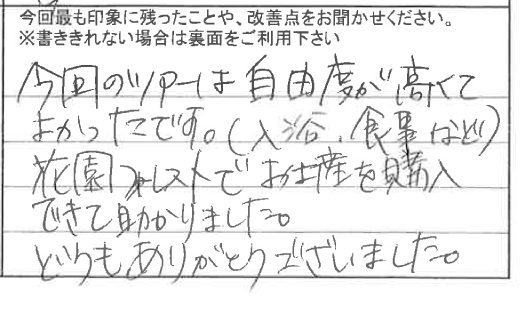 今回最も印象に残ったことや、改善点をお聞かせください。
※書ききれない場合は裏面をご利用下さい
今回のツアーは自由度が高くて
よかったです。(入浴、食事など)
花園フォレストでお土産を購入
できて助かりました。
どうもありがとうございました。